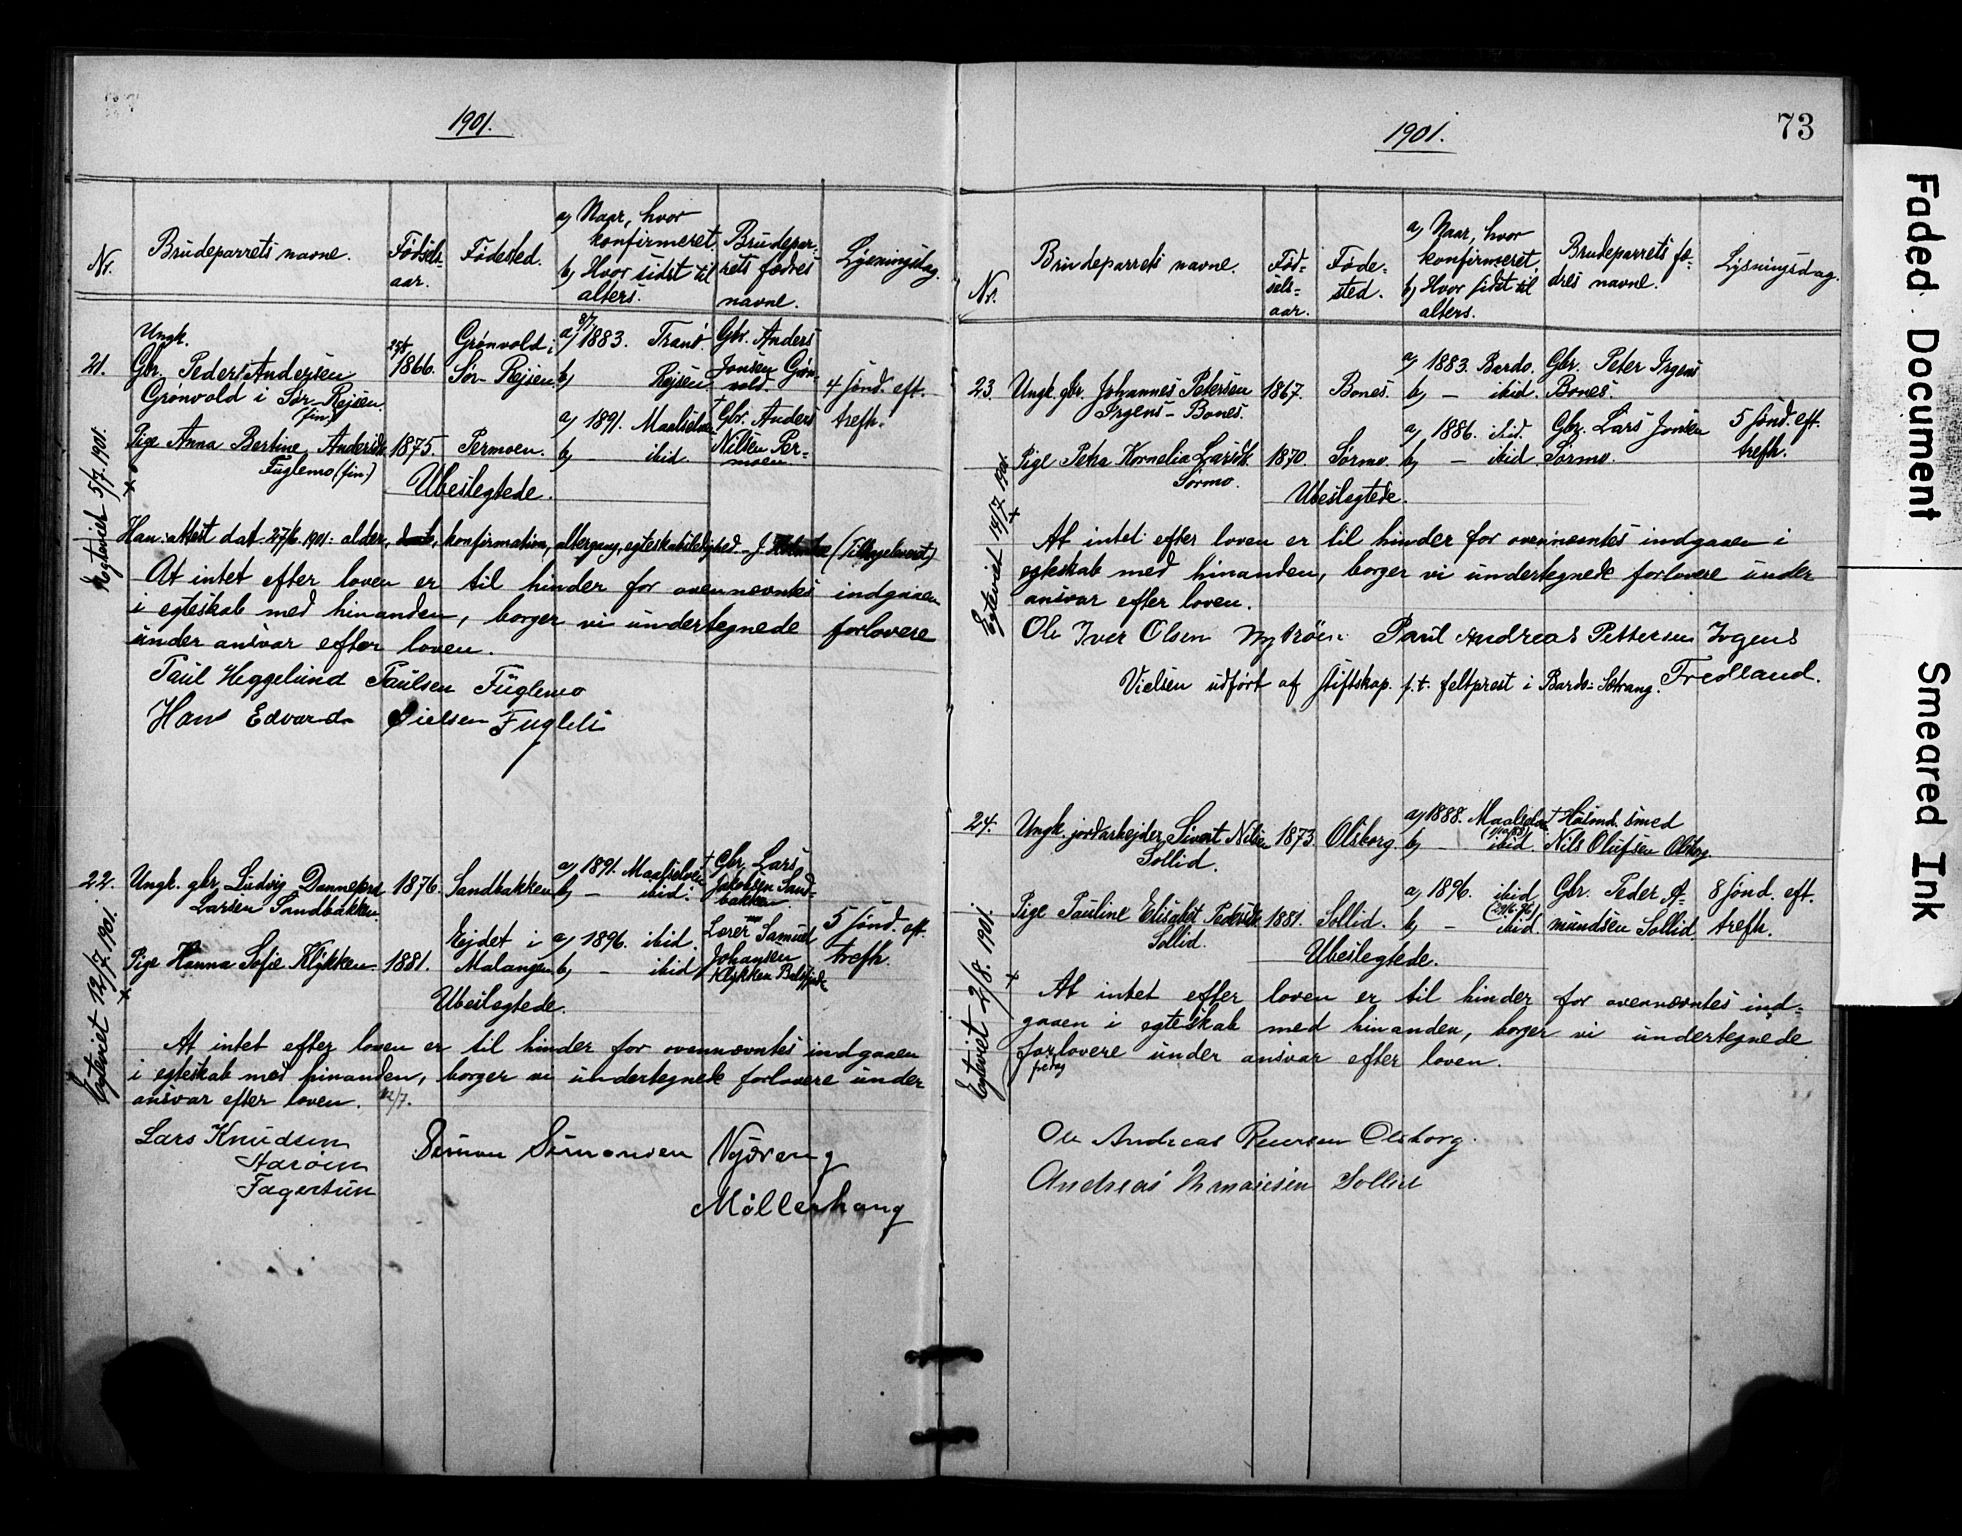 1901.
Nr.
Brudeparrets navne.
Fødsels-
aar.
Fødested.
a) Naar, hvor
konfirmeret
b) Hvor sidst til
alters.
Brudepar-
rets fædres
navne.
Lysningsdag.
Ungk.
21. Gbr. Peder Andersen
Grønvold i Sør-Rejsen.
(fin)
25/8
1866.
Grønvold i
Sør-Rejsen
a) 8/7 1883. Tranö.
b) Rejsen
Gbr. Anders
Jonsen Grøn-
vold.
4 sønd. eft.
trefh.
Pige Anna Bertine Andersdt.
Fuglemo (fin)
1875. Permoen.
a) 1891. Maalselven
b) — ibid.
+ Gbr. Anders
Nilsen Per-
moen
Ubeslegtede.
Egteviet 5/7. 1901.
Han: attest dat. 27/6 1901: alder, konfirmation, altergang, egteskabsledighed (Tillyselevert)
At intet efter loven er til hinder for ovennevntes indgaaen
i egteskab med hinanden, borger vi undertegnede forlovere
under ansvar efter loven.
Paul Heggelund Paulsen Fuglemo
Hans Edvard Nielsen Fugleli
22. Ungk. gbr. Ludvig Dannepred
Larsen Sandbakken
1876. Sandbakken
a) 1891. Maalselven
b) — ibid.
+ Gbr. Lars
Jakobsen Sand-
bakken
5 sønd. eft.
trefh
Pige Hanna Sofie Klykken. 1881.
Ejdet i
Malangen
a) 1896. ibid.
b) — ibid
Lærer Samuel
Johansen
Klykken Balsfjord
Ubeslegtede.
Egteviet 12/7. 1901.
At intet efter loven er til hinder for ovennævntes indgaaen
i egteskab med hinanden, borger vi undertegnede forlovere under
ansvar efter loven. 12/7.
Lars Knudsen
Aarøen
Fagertun
Simon Simonsen Nyvreng
Møllerhaug
1901.
73
Nr.
Brudeparrets navne.
Fød-
sels-
aar.
Føde-
sted.
a) Naar, hvor
konfirmeret
b) Hvor sidst til
alters.
Brudeparrets fæ-
dres navne.
Lysningsdag.
23. Ungk. gbr. Johannes Petersen
Irgens-Bones.
1867. Bones.
a) 1883. Bardo.
b) — ibid.
Gbr. Peter Irgens
Bones.
5 sønd. eft.
trefh.
Pige Petra Kornelia Larsdt.
Sørmo.
1870. Sørmo.
a) 1886. ibid.
b) — ibid.
Gbr. Lars Jonsen
Sørmo.
Ubeslegtede.
Egteviet 14/7. 1901.
At intet efter loven er til hinder for ovennævntes indgaaen i
egteskab med hinanden, borger vi undertegnede forlovere under
ansvar efter loven.
Ole Iver Olsen Nytröen Paul Andreas Pettersen Irgens
Fredland.
Vielsen udført af stiftskap. f.t. feltprest i Bardo: Sætrang.
24. Ungk. jordarbejder Sivert Nilsen
Sollid.
1873. Olsborg.
a) 1888. Maalselven
b) — ibid.
+ Husmd. smed
Nils Olufsen Olsborg.
8 sønd. eft.
trefh.
Pige Pauline Elisabet Pedersdt.
Sollid.
1881. Sollid.
a) 1896. ibid
b) — ibid
Gbr. Peder A-
mundsen Sollid.
Ubeslegtede.
Egteviet 2/8. 1901.
At intet efter loven er til hinder for ovennævntes ind-
gaaen i egteskab med hinanden, borger vi undertegnede
forlovere under ansvar efter loven.
fredag
Ole Andreas Olsborg.
Andreas Sollid
Faded Document
Smeared Ink